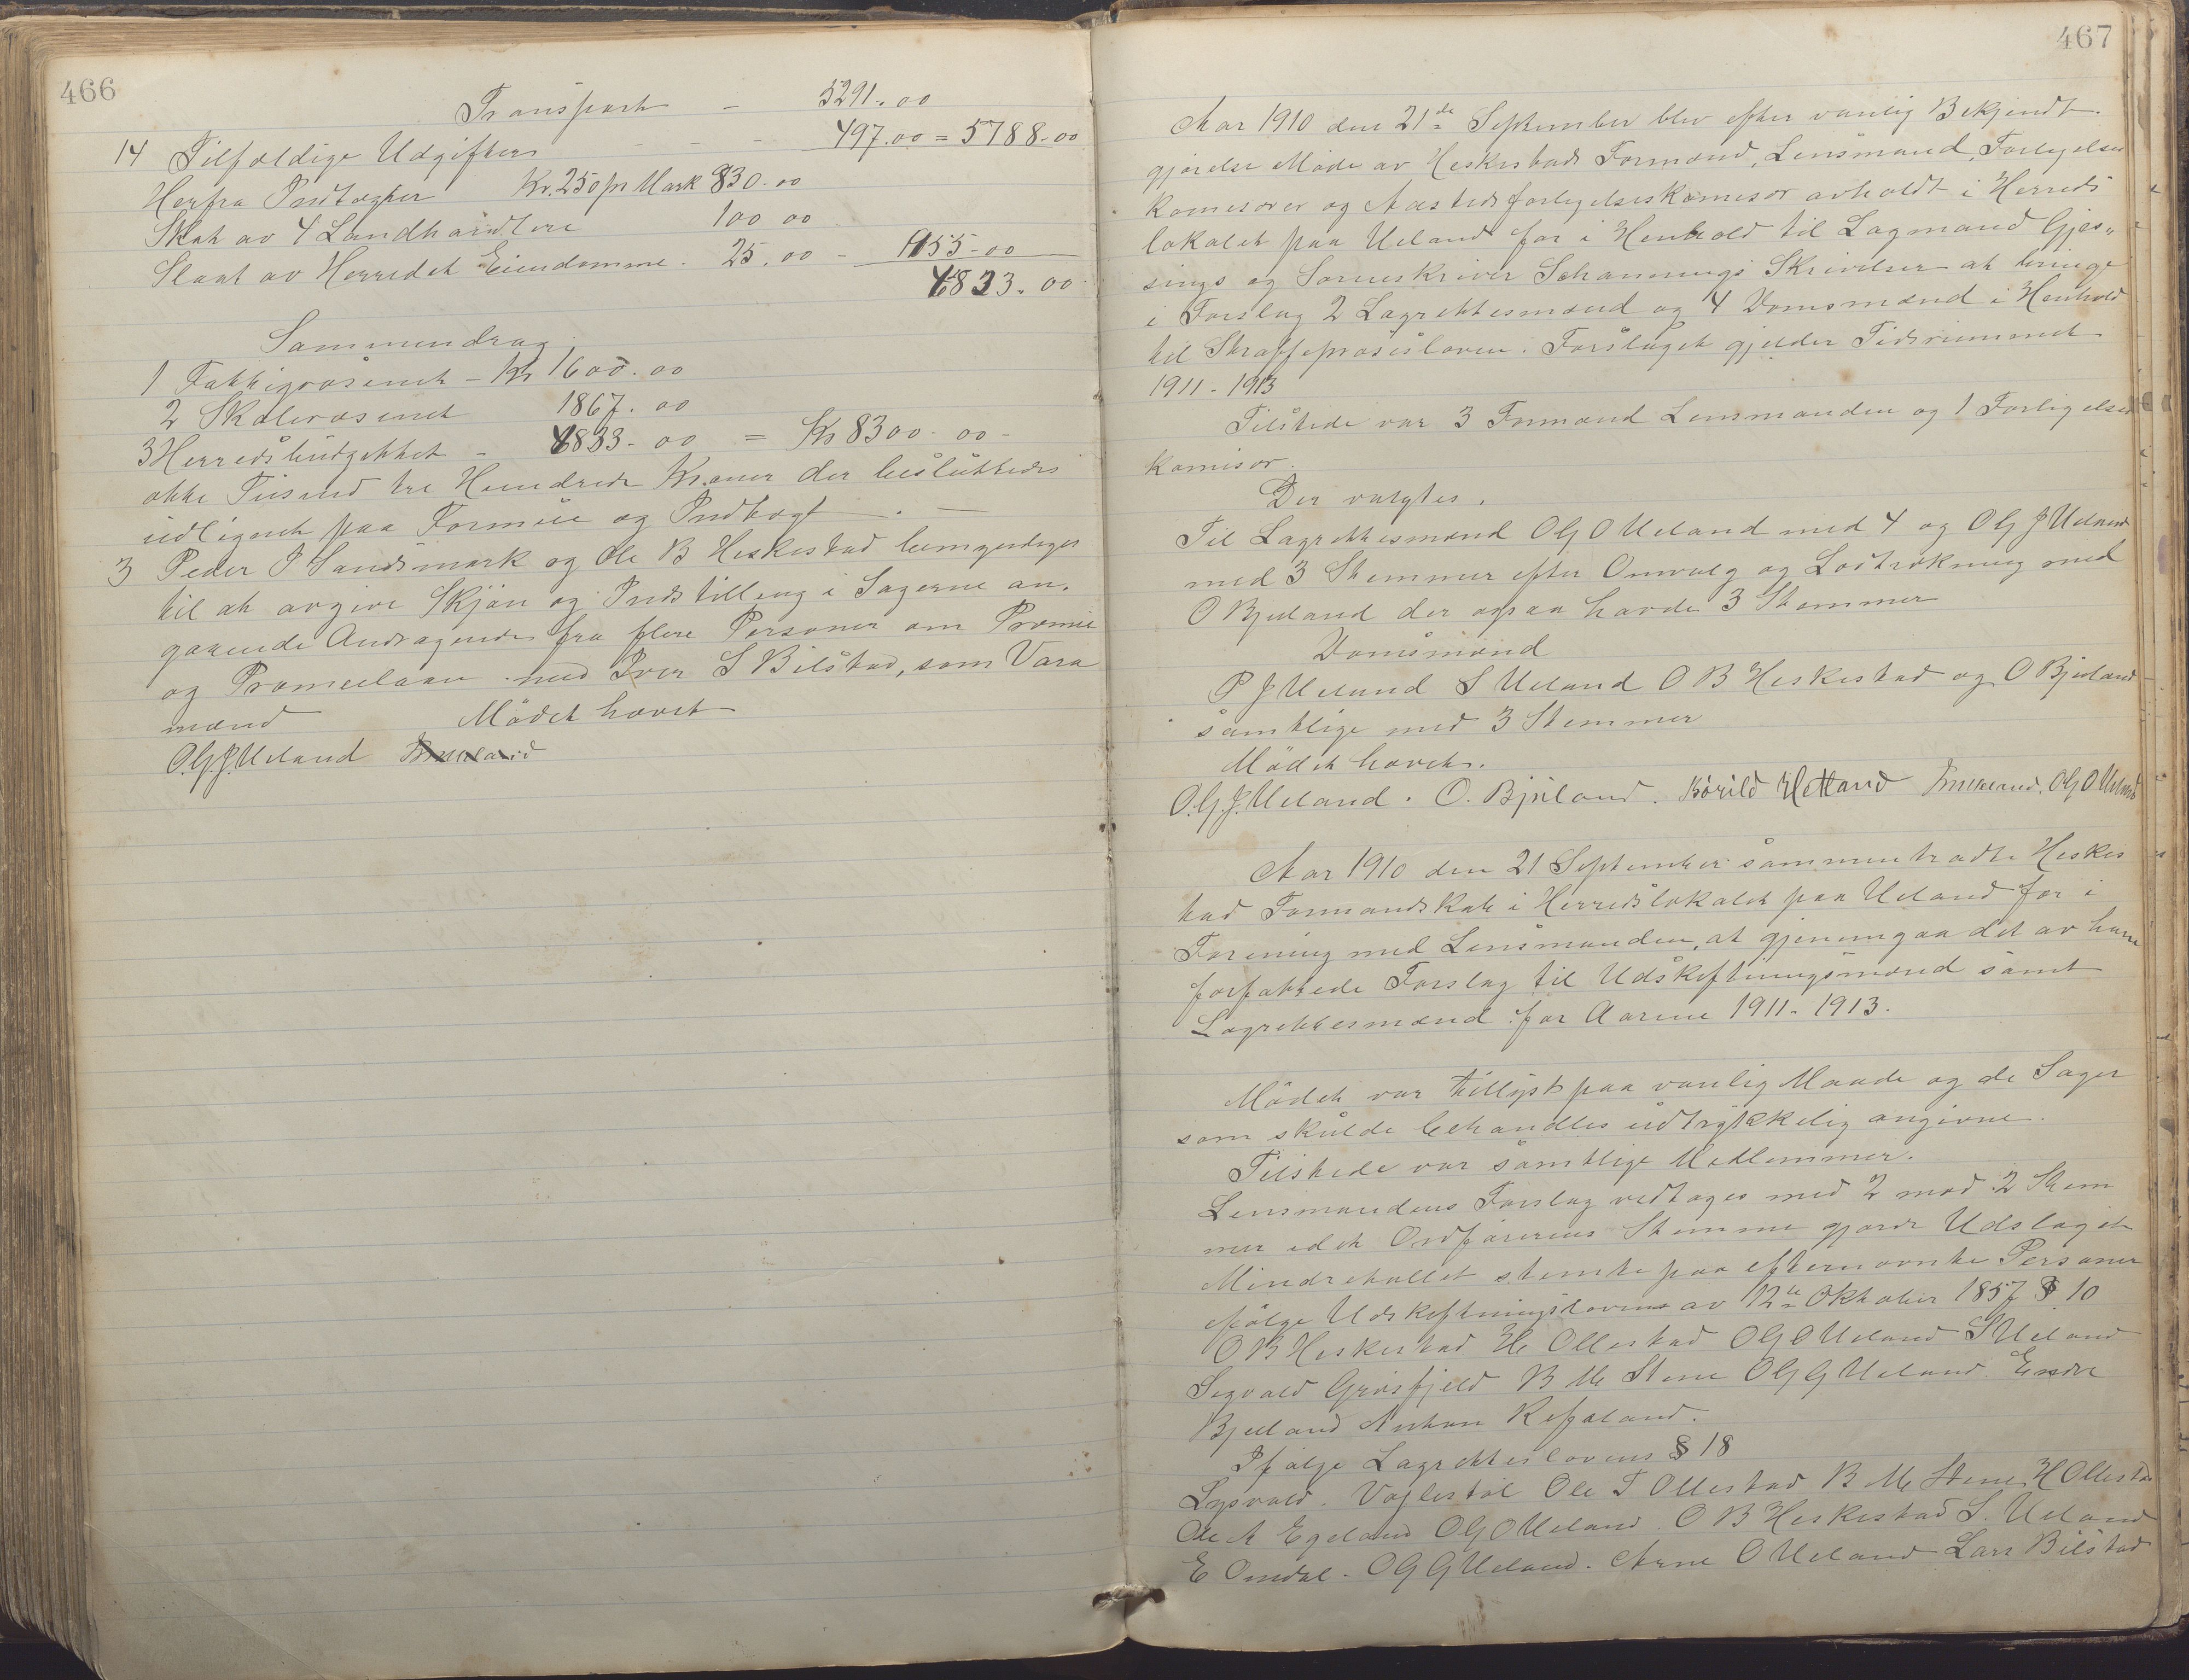 466
Transport - 5291.00
14 Tilfældige Udgifter - - - 497.00 = 5788.00
Herfra Indtægter Kr. 250 pr Mark 830.00
Skat av 4 Landhandlere 100 00
Slaat av Herredets Eiendomme. 25.00 - 955-00
4833.00
Sammendrag
1 Fattigvæsenet - Kr 1600.00
2 Skolevæsenet 1867.00
3 Herredsbudgettet - 4833-00 = Kr 8300-00-
otte Tusind tre Hundrede Kroner der besluttedes
udlignet paa Formue og Indtægt. —
3 Peder I Sandsmark og Ole B Heskestad bemyndiges
til at avgive Skjøn og Indstilling i Sagerne an-
gaaende Andragender fra flere Personer om Præmie
og Præmielaan med Iver S Bilstad, som Vara
mænd Mödet hævet
O.G.J. Ueland
467
Aar 1910 den 21de September blev efter vanlig Bekjendt-
gjørelse Møde av Heskestads Formænd, Lensmand, Forligelses
komisærer og Aastedsforligelseskomisær avholdt i Herreds
lokalet paa Ueland for i Henhold til Lagmand Gjes-
sings og Sorenskriver Schannings Skrivelser at bringe
i Forslag 2 Lagrettesmænd og 4 Domsmænd i Henhold
til Straffeprosesloven. Forslaget gjelder Tidsrummet
1911-1913
Tilstede var 3 Formænd Lensmanden og 1 Forligelses
komisær.
Der valgtes.
Til Lagrettesmænd O G O Ueland med 4 og O G J Ueland
med 3 Stemmer efter Omvalg og Lodtrækning med
O Bjuland der ogsaa havde 3 Stemmer
Domsmænd
P J Ueland S Ueland O B Heskestad og O Bjuland
samtlige med 3 Stemmer
Mödet hævet.
O.G.J. Ueland. O. Bjuland. Børild Hetland O G O Ueland
Aar 1910 den 21 September sammentraadte Heskes
tad Formandskab i Herredslokalet paa Ueland for i
Forening med Lensmanden, at gjennemgaa det av ham
forfattede Forslag til Udskiftningsmænd samt
Lagrettesmænd for Aarene 1911-1913.
Mödet var tillyst paa vanlig Maade og de Sager
som skulde behandles udtrykkelig angivne.
Tilstede var samtlige Medlemmer.
Lensmandens Forslag vedtages med 2 mod 2 Stem
mer idet Ordførerens Stemme gjorde Udslaget
Mindretallet stemte paa efternævnte Personer
ifølge Udskiftningslovens av 12te Oktober 1857 § 10
O B Heskestad H Ollestad O G O Ueland S Ueland
Segvald Grøsfjeld B M Stene O G G Ueland Endre
Bjuland Anton Refsland.
Ifølge Lagretteslovens § 18
Sigvald Vaglestøl Ole T Ollestad B M Stene H Ollestad
Ole A Egeland O G O Ueland O B Heskestad S. Ueland
E Omdal. O G G Ueland. Arne O Ueland Lars Bilstad